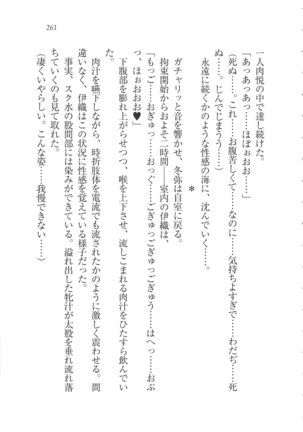 261
一人肉悦の中で達し続けた。
「あっあっあっ……ほぼぉおお」
(死ぬ……。これ……お腹苦しくて……なのに……気持ちよすぎで……わだぢ……死
ぬ……。じんでじまうう……)
永遠に続くかのような性感の海に、沈んでいく……。
*
ガチャリッと音を響かせ、冬弥は自室に戻る。
拘束開始からおよそ二時間――室内の伊織は、
「もっご……おぎゅっ……おっぐ……ごぎゅっっごぎゅっごぎゅう……はへっ……おぶ
っ、ほぉおおお♥」
下腹部を膨れ上がらせつつ、喉を上下させ、流しこまれる肉汁をひたすら飲んでい
た。
肉汁を嚥下しながら、時折肢体を電流でも流されたかのように激しく震わせる。間
違いなく、伊織はこの状況に性感を覚えている様子だった。
事実、スク水の股間部には染みができている。溢れ出した牝汁が太股を垂れ流れ落
ちていくのも見て取れた。
(凄くいやらしい。こんな姿……我慢できない……)